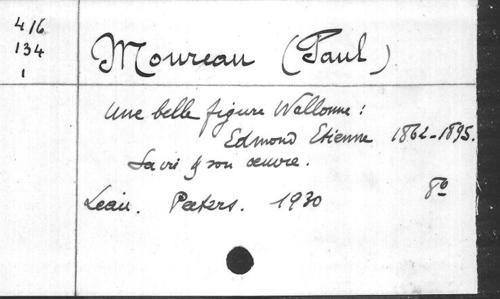 416
134
1
Moureau (Paul)
Une belle figure Wallonne :
Edmond Etienne 1862-1895.
Sa vie & son œuvre.
Peeters. 1930 8º